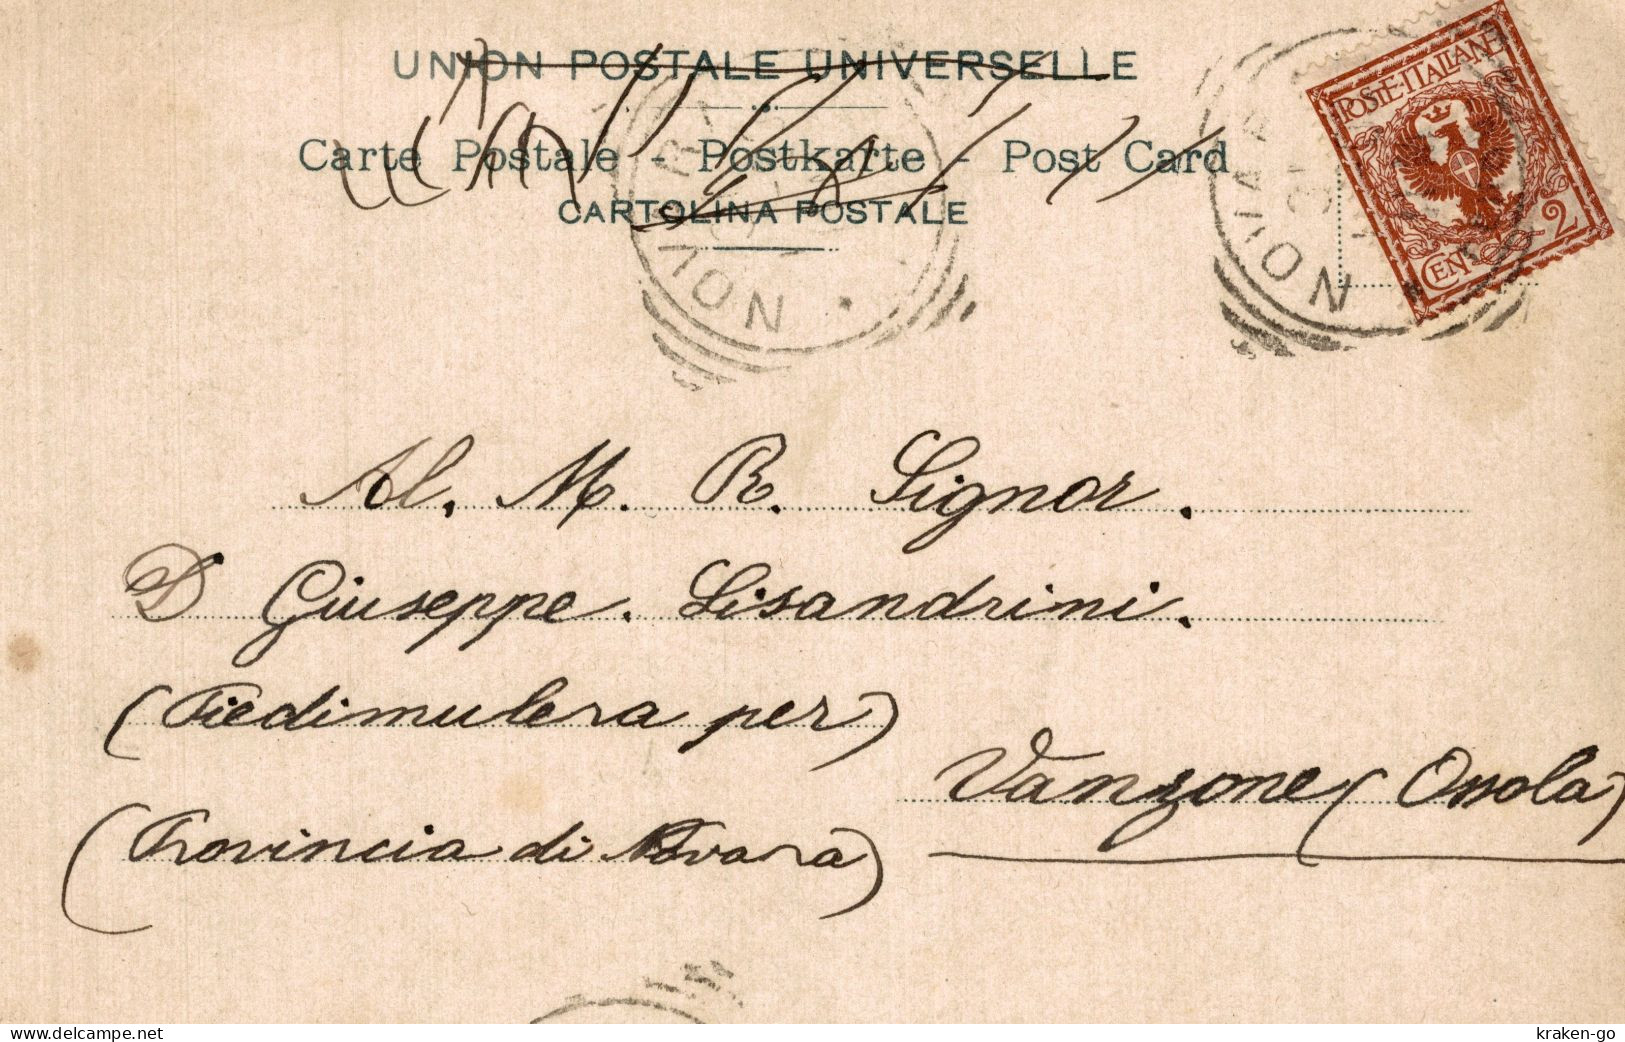 UNION POSTALE UNIVERSELLE
Carte Postale - Postkarte - Post Card
CARTOLINA POSTALE
POSTE·ITALIANE
2
CENT
Al. M. R. Signor.
D Giuseppe. Lisandrini.
(Piedimulera per)
Vanzone (Ossola)
(Provincia di Novara)
www.delcampe.net
kraken-go